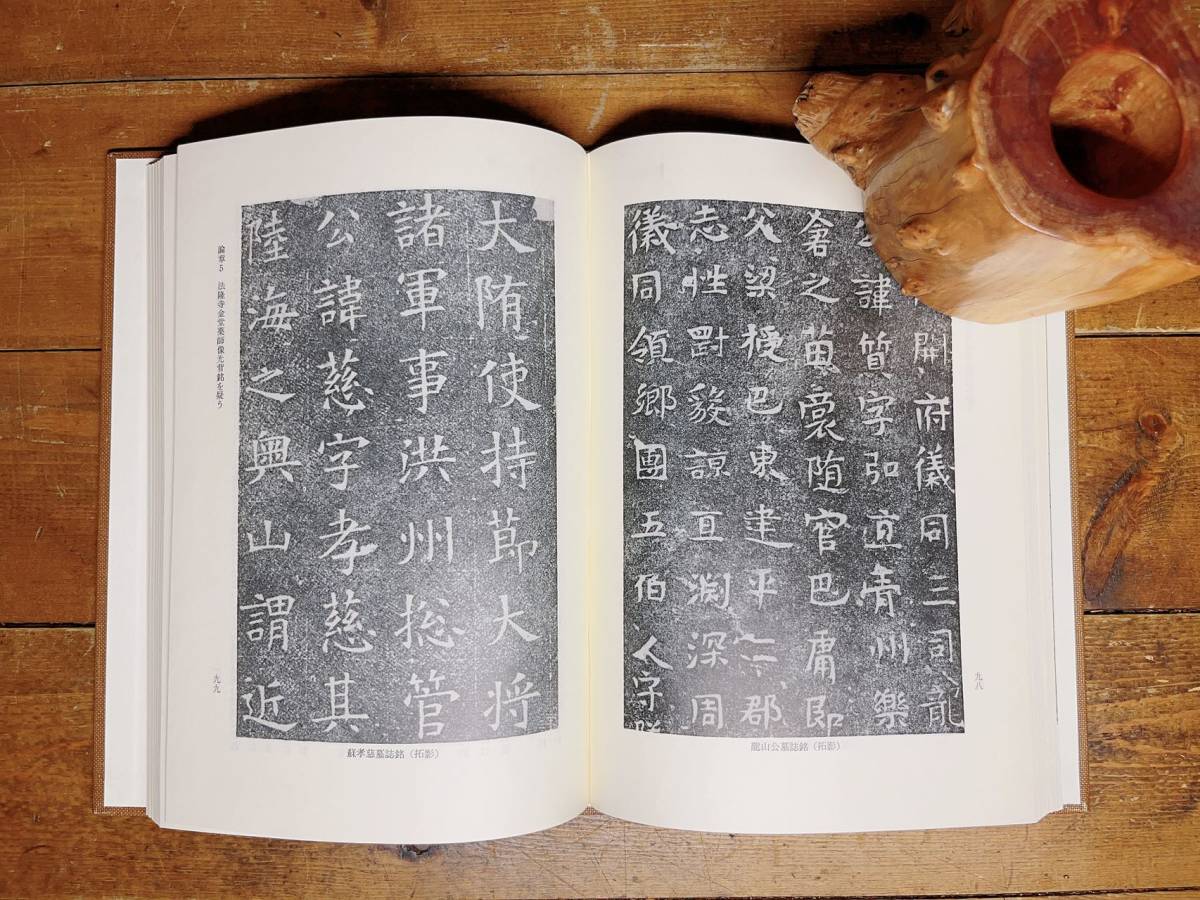 開府儀同三司龍
公諱質字弘直青州樂
倉之苗裔随官巴庸即
父梁授巴東建平二郡
志性毅諒亘渕深周
儀同領郷團五伯人
龍山公墓誌銘（拓影）
九八
大随使持節大将
諸軍事洪州総管
公諱慈字孝慈其
陸海之奥山謂近
蘇孝慈墓誌銘（拓影）
論章5 法隆寺金堂薬師像光背銘を疑う
九九